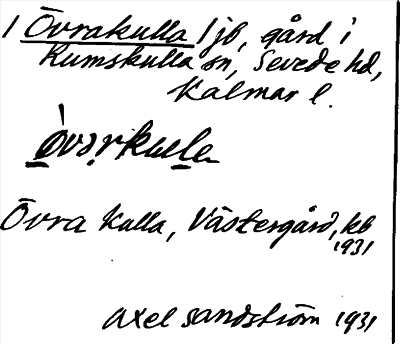 1 Övrakulla 1 jb, gård i
Rumskulla sn, Sevede hd,
Kalmar l.
òvərkulla
Övra Kulla, Västergård, kb
1931
Axel Sandström 1931